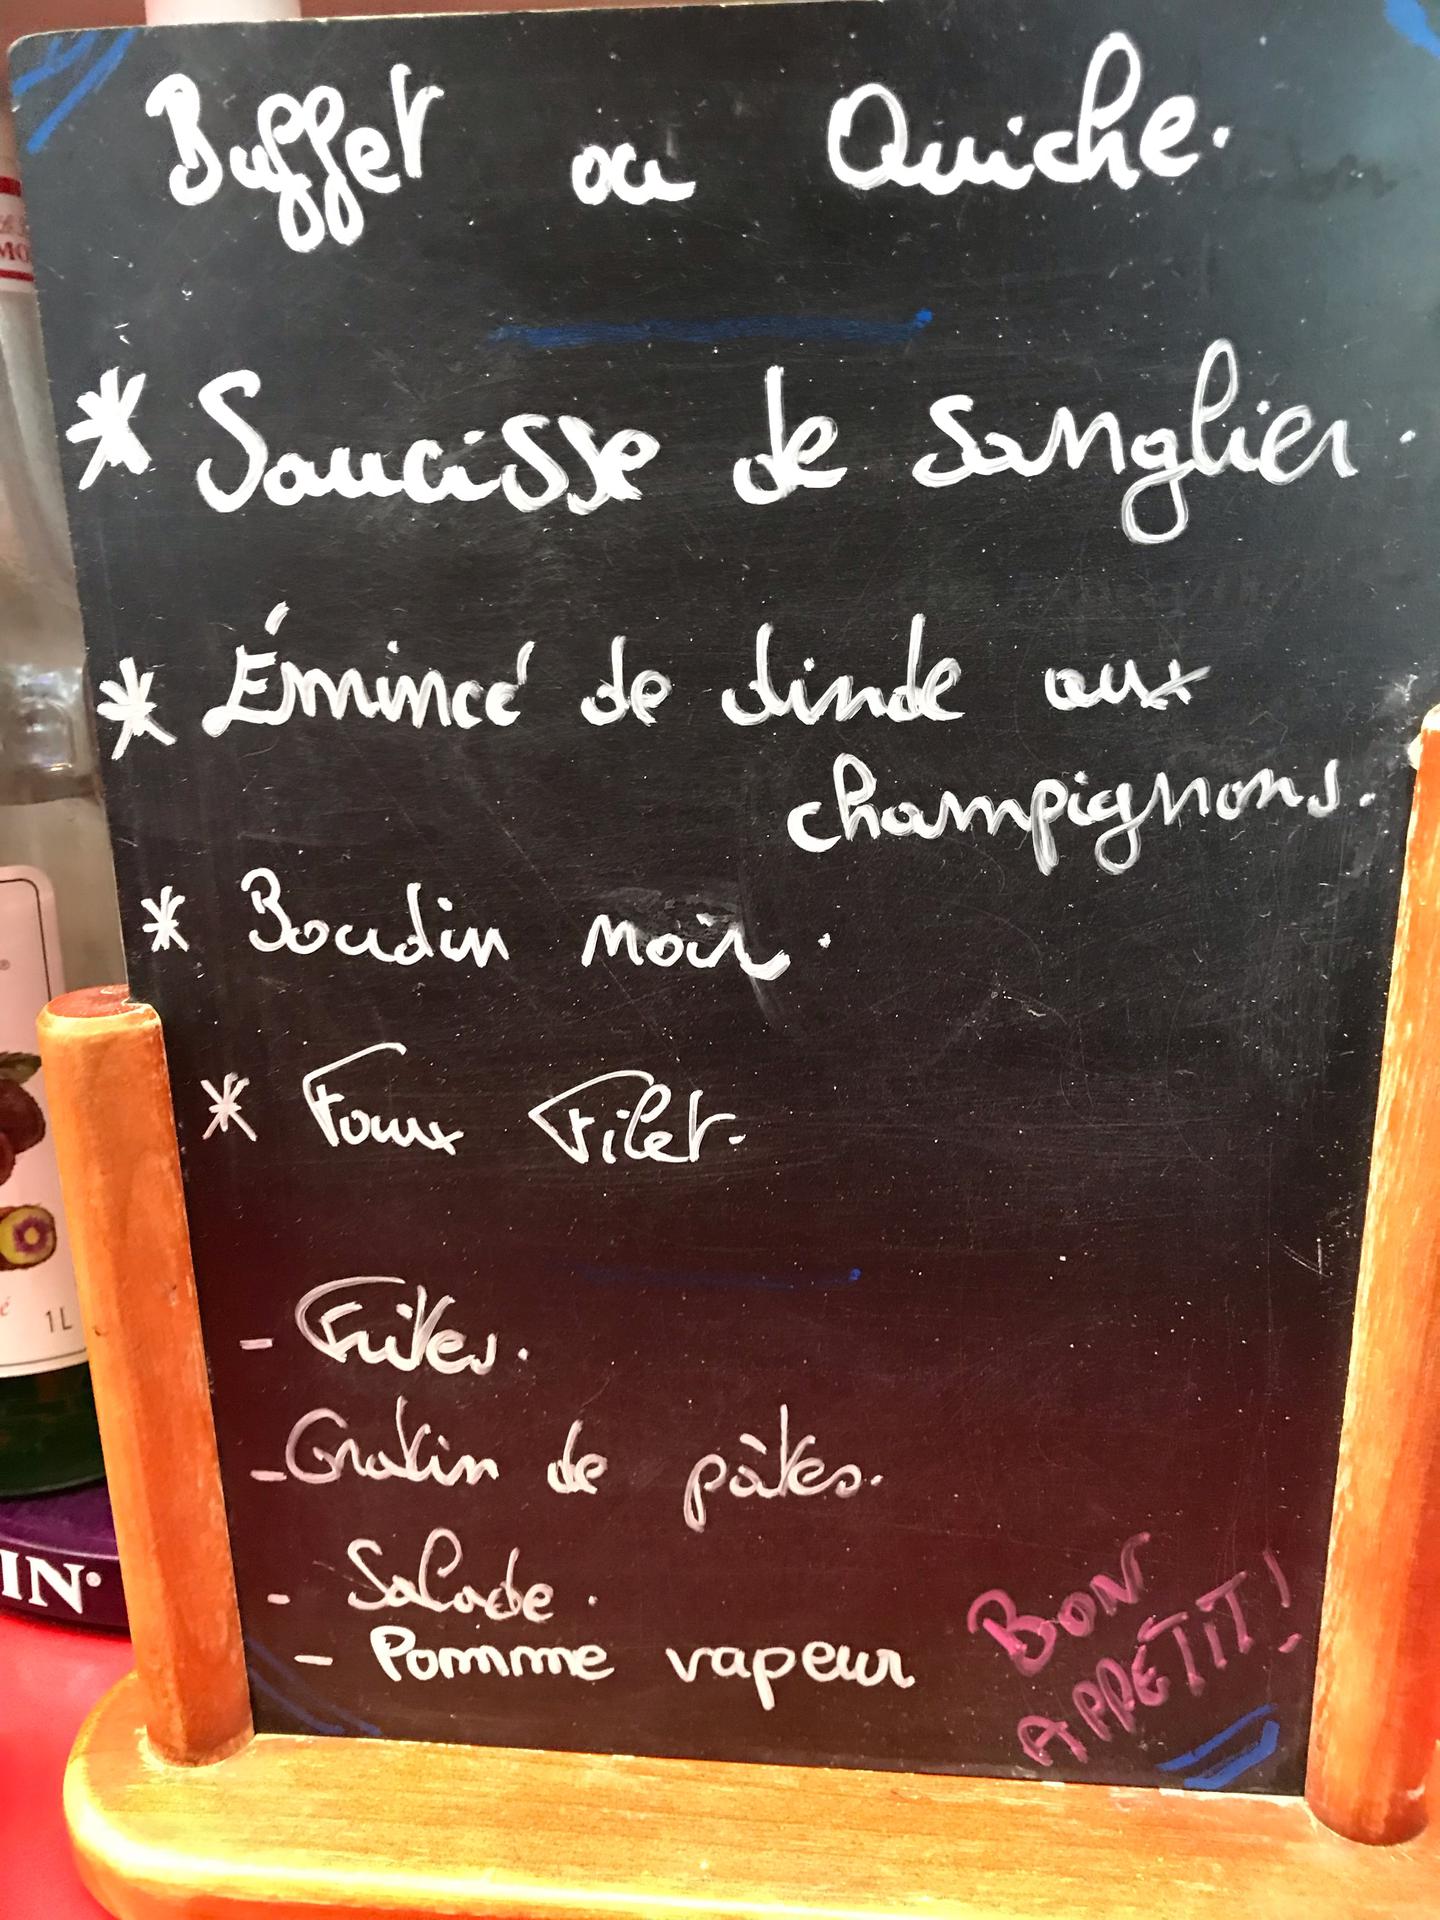 Buffet ou Quiche.
* Saucisse de sanglier.
* Émincé de dinde aux
champignons.
* Boudin noir.
* Faux Filet.
- Frites.
- Gratin de pàtes.
- Salade.
- Pomme vapeur
BON
APPÉTIT!
1L
IN